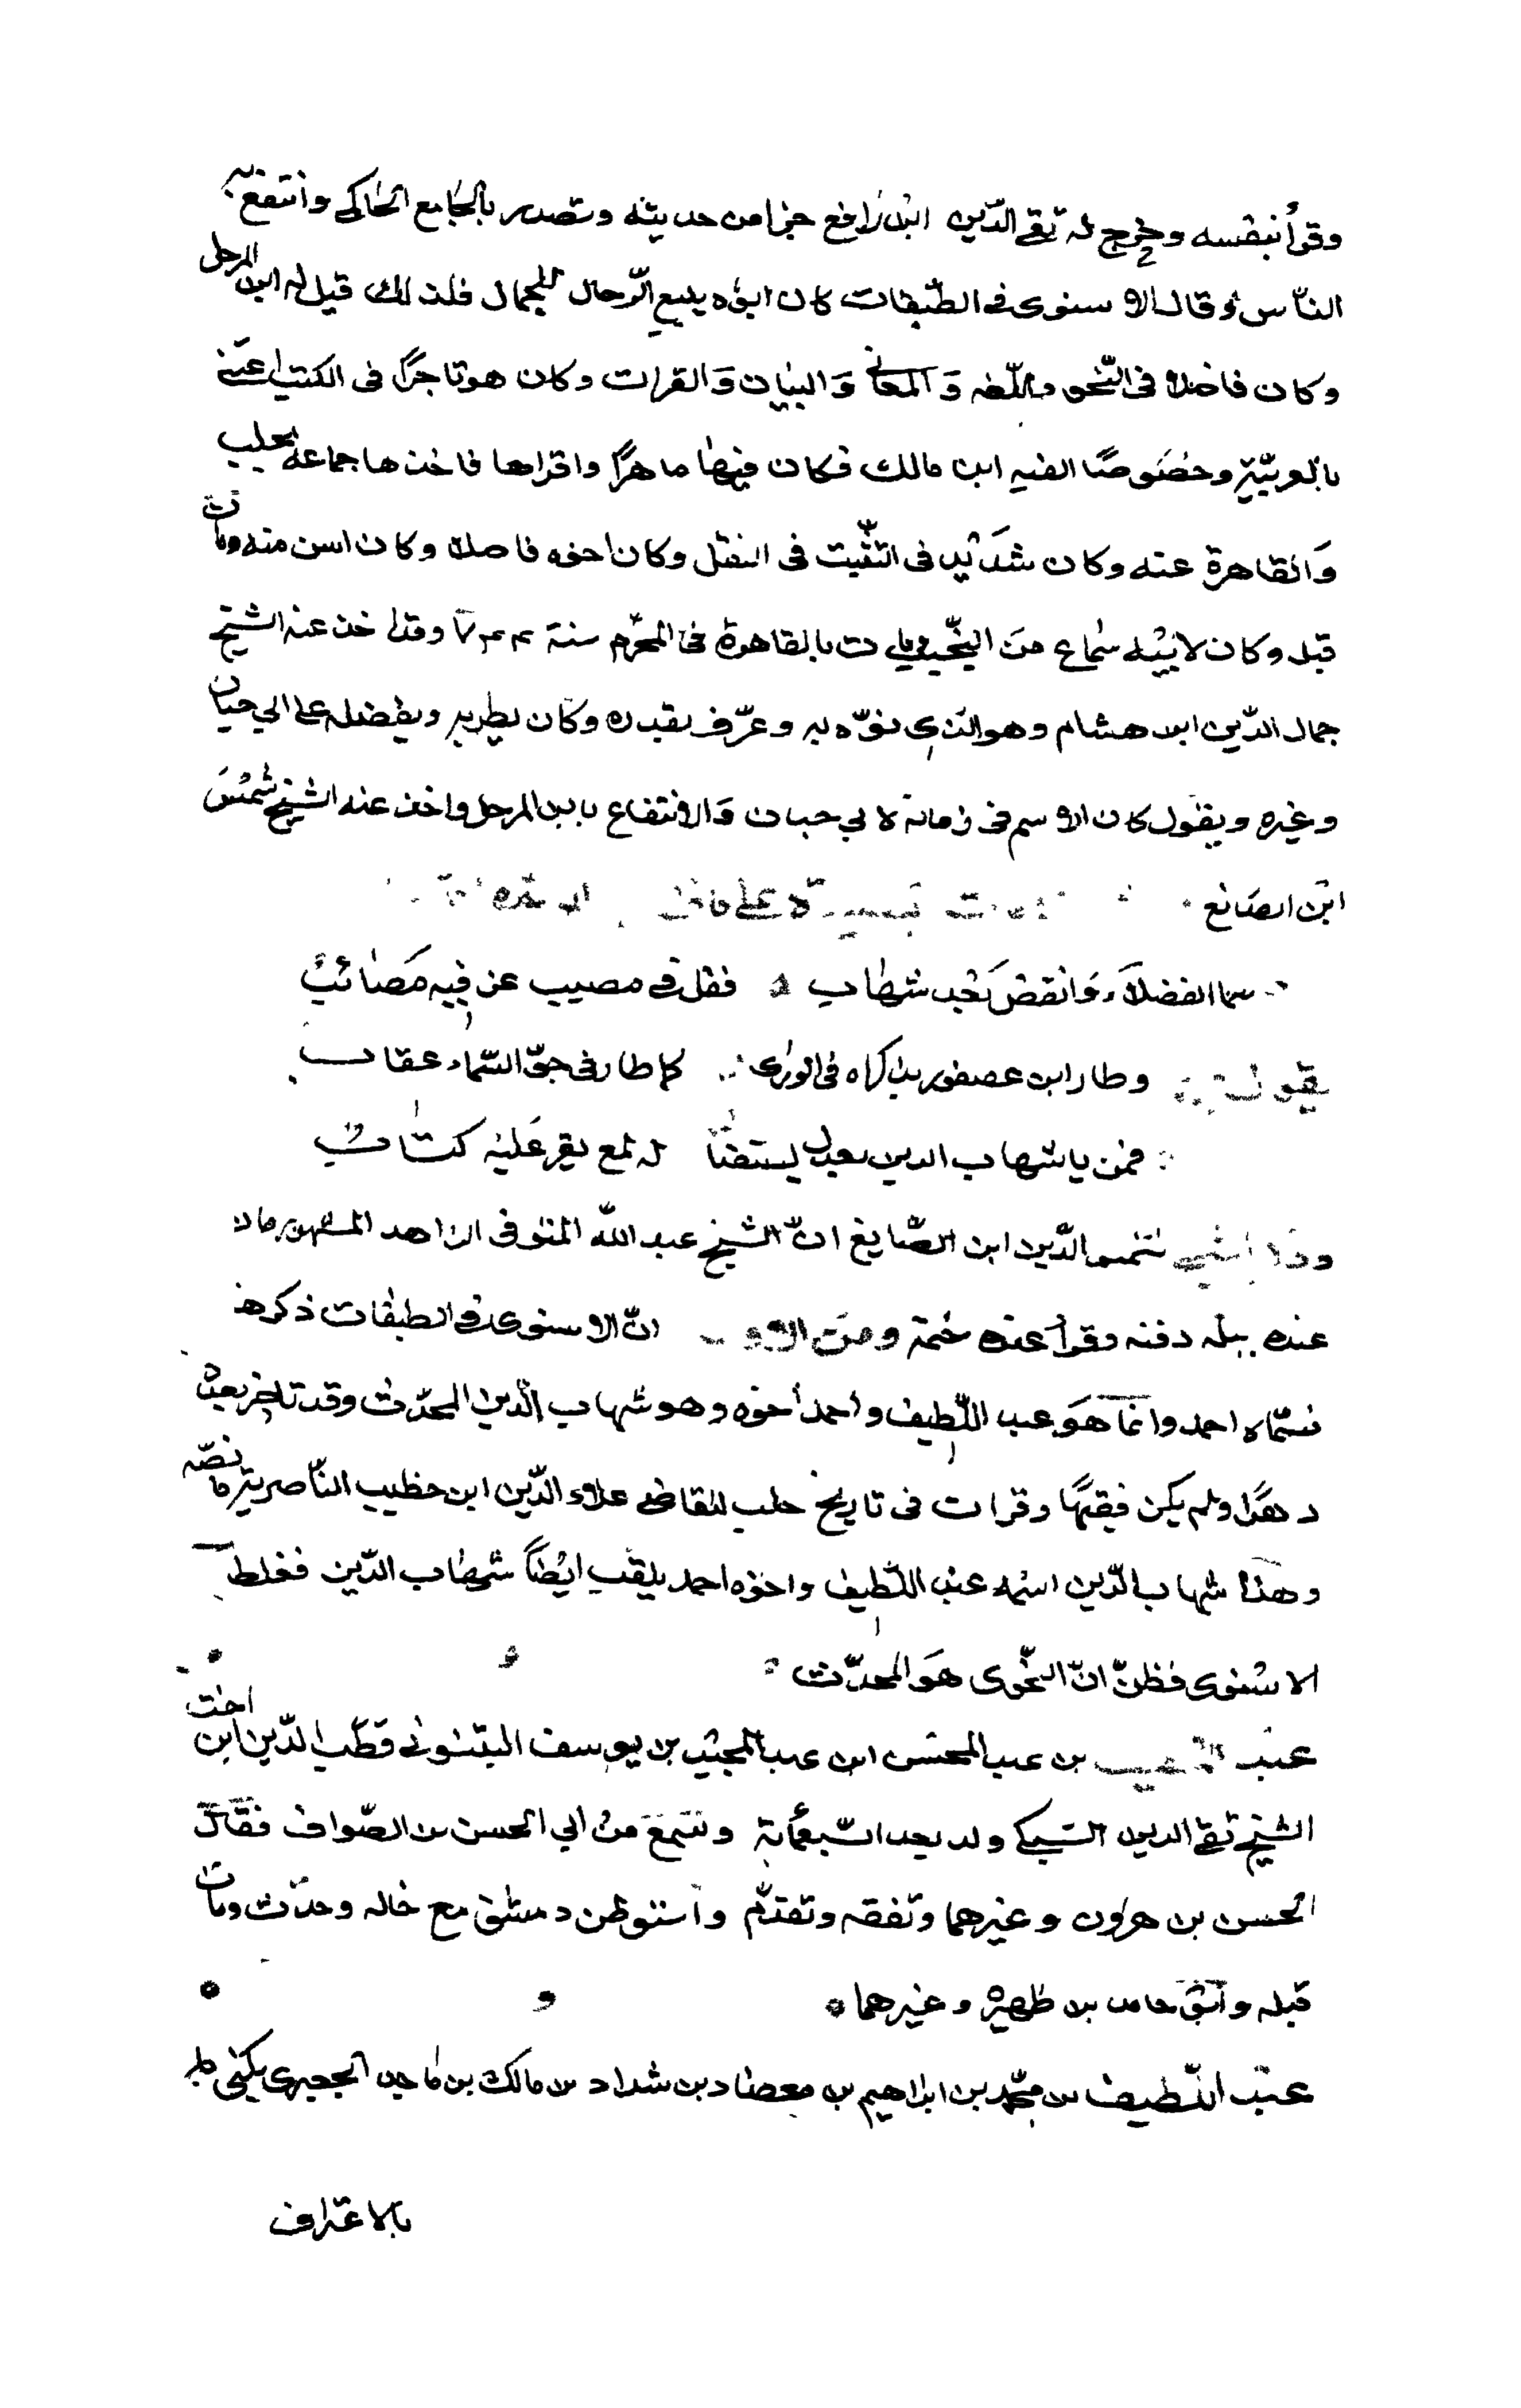 وقرأ بنفسه وخرج له تقي الدّين ابن رَافع جزا من حديثه وتصدر بالجَامع الحَاكمي وانتفع به
النّاس وقال الاسنوى في الطبّقات كان ابوُه يبيع الرّحال للجمال فلذلك قيل له ابن المرحل
وكان فاضلا في النّحو واللّغه وَالمعَاني وَالبيَان وَالقرات وكان هو تاجرًا في الكتب اعتنى
بالعربيّة وخصَوصًا الفيه ابن مالك فكان فيهَا ماهرًا واقراها فاخذها جماعة بحلب
وَالقاهرة عنه وكان شدَيْد في التثّبت في النقل وكان اخوه فاضلا وكان اسن منه ومات
قبله وكان لابيْه سَماع منَ النجّيب ومات بالقاهرة في المحرّم سنة ٧٤٤ وقد اخذ عنه الشيخ
جمال الدّين ابن هشام وهو الذي نوّه به وعرّف بقدره وكان يطريه ويفضله على ابي حيان
وغيره ويقول كان الاسم في زمانه لابي حيان وَالانتفاع بابن المرحل واخذ عنه الشيخ شمسَ
ابن الصَائغ
سما الفضلاَء وَانقض نجَم شهَاب فقل في مصيب عن فيه مَصَائبُ
يقول وطار ابن عصفور بذكراه في الورَى كما طار في جوّ السّماء عقاب
فمن يا شهاب الدين بعدك يستضَا له لمع يقر عَليْه كتَابُ
الدّين ابن الصّايغ انّ الشيخ عبد اللّه المنوفى الزاهد المشهور مات
عنده ليله دفنه وقرأ عنده ختمة ومنَ انّ الاسنوى في الطبقات ذكره
فسمّاه احمد وانمّا هوَ عبد اللّطيف واحمد أخوه وهو شهاب الدّين المحدّث وقد تاخر بعده
دهرًا ولم يكن فقيهًا وقرات في تاريخ حلب للقاضى علاء الدّين ابن خطيب النّاصرية ما نصّه
وهذا شهاب الدّين اسْمه عبْد اللّطيف واخوه احمد يلقب ايْضاً شهَاب الدّين فغلط
الاسْنوى فظنّ انّ النحّوى هوَ المحدّث
عبْد اللطيف بن عبد المحسن ابن عبد المجيْد بن يوسف البتنوني قطبُ الدّين ابن اخت
الشيخ تقي الدين السّبكي ولد بعد السّبعمأية وسَمعَ منْ ابي الحسن بن الصّواف فقال
الحسن بن هرون وغيرهما وتفقه وتقدّم واستوطن دمشق مع خاله وحدّث ومات
قبله حامد بن ظهيرة وغيرهما
عبْد اللّطيف بن محمّد بن ابراهيم بن معضاد بن شداد بن مالك بن ماجد الجعبرى يكنى
بالاعتراف